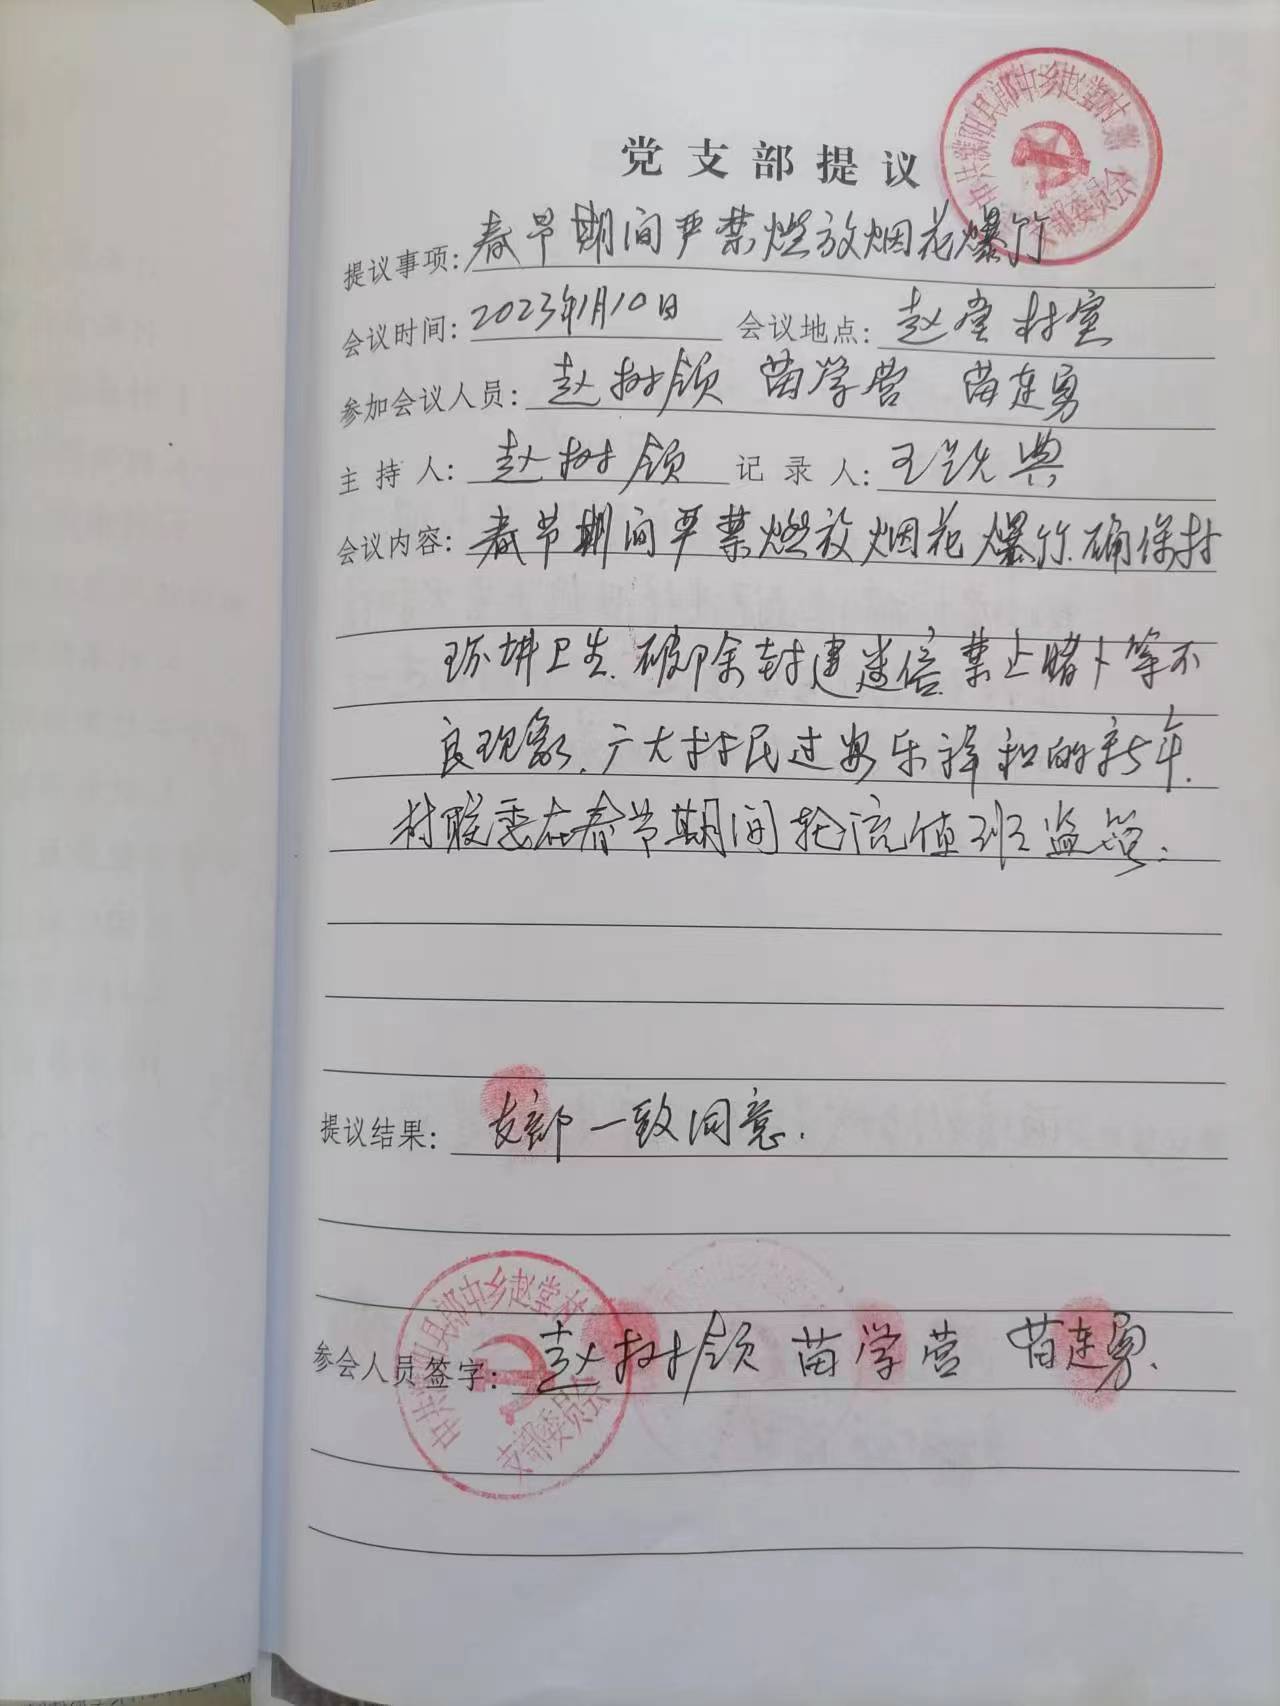 党支部提议
中共濮阳县郎中乡赵堂村支部委员会
提议事项:春节期间严禁燃放烟花爆竹
会议时间:2023年1月10日 会议地点:赵堂村室
参加会议人员:赵树领 苗学营 苗连勇
主持人:赵树领 记录人:王 典
会议内容:春节期间严禁燃放烟花爆竹.确保村
环境卫生.破除封建迷信.禁止赌卜等不
良现象.广大村民过安乐祥和的新年.
村 委在春节期间轮流值班监管.
提议结果:支部一致同意.
参会人员签字:赵树领 苗学营 苗连勇.
中共濮阳县郎中乡赵堂村
支部委员会